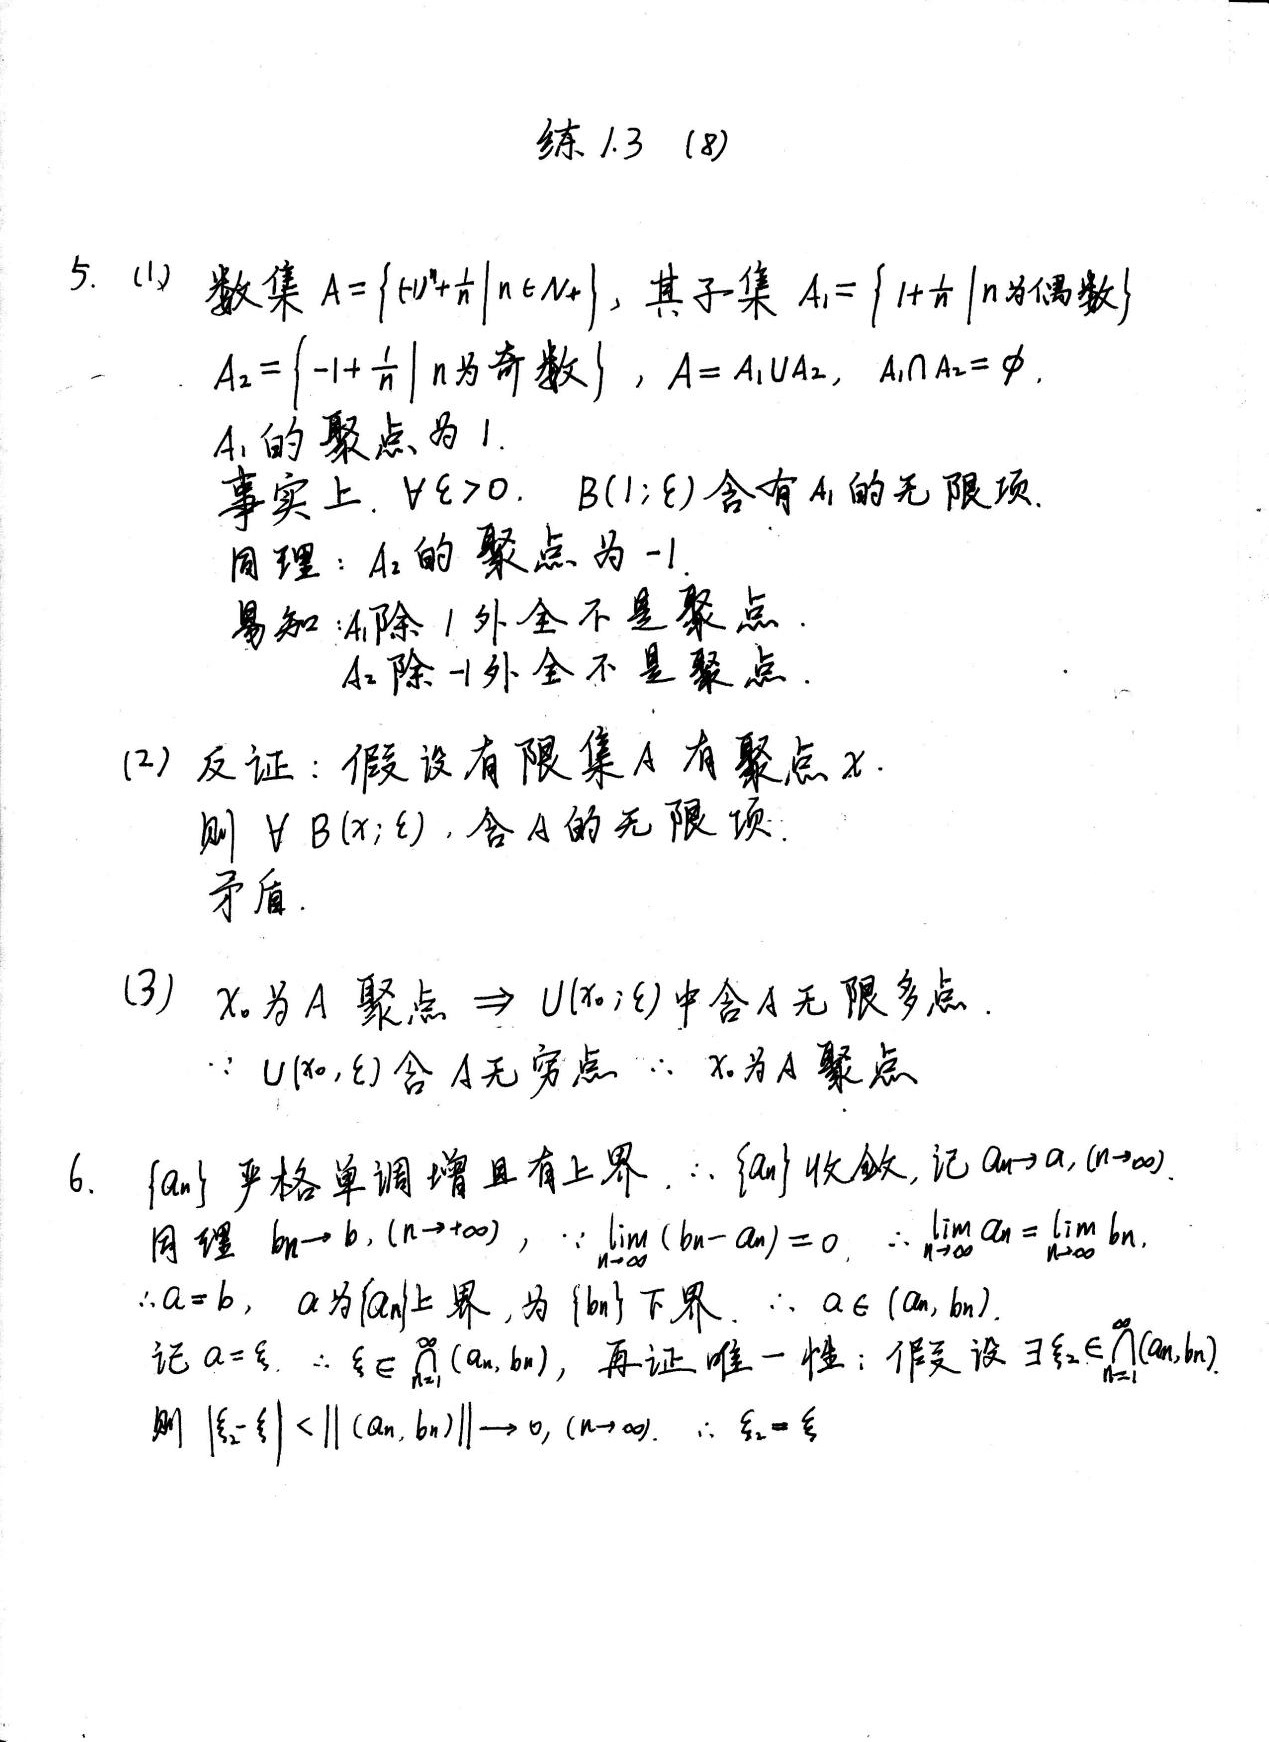 练 1.3 (8)
5. (1) 数集 A = {(-1)ⁿ + 1/n | n ∈ N₊}, 其子集 A₁ = {1 + 1/n | n为偶数}
A₂ = {-1 + 1/n | n为奇数}, A = A₁∪A₂, A₁∩A₂ = ∅.
A₁ 的聚点为 1.
事实上. ∀ε>0. B(1; ε) 含有 A₁ 的无限项.
同理: A₂ 的聚点为 -1.
易知: A₁除 1 外全不是聚点.
A₂ 除 -1 外全不是聚点.
(2) 反证: 假设有限集 A 有聚点 x.
则 ∀ B(x; ε), 含 A 的无限项.
矛盾.
(3) x₀为 A 聚点 ⇒ U(x₀; ε) 中含 A 无限多点.
∵ U(x₀, ε) 含 A 无穷点 ∴ x₀为 A 聚点
6. {aₙ} 严格单调增且有上界. ∴ {aₙ} 收敛, 记 aₙ→a, (n→∞).
同理 bₙ→b, (n→+∞), ∵ lim_{n→∞} (bₙ - aₙ) = 0. ∴ lim_{n→∞} aₙ = lim_{n→∞} bₙ.
∴ a = b, a为{aₙ}上界, 为{bₙ}下界. ∴ a ∈ (aₙ, bₙ).
记 a = ξ. ∴ ξ ∈ ⋂_{n=1}^{∞} (aₙ, bₙ), 再证唯一性: 假设 ∃ξ₂ ∈ ⋂_{n=1}^{∞} (aₙ, bₙ).
则 |ξ₂ - ξ| < ||(aₙ, bₙ)|| → 0, (n→∞). ∴ ξ₂ = ξ